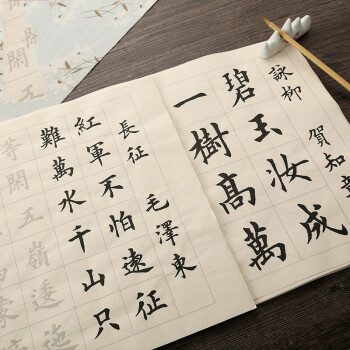 詠柳 賀知章
碧玉妆成
一樹高萬
長征 毛澤東
紅軍不怕遠征
難萬水千山只
等閒五嶺逶迤
閒五